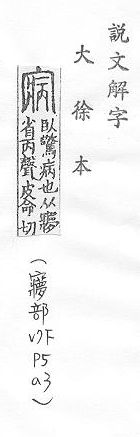 説文解字
大徐本
寎
臥驚病也从㝱
省丙聲皮命切
(㝱部 v7下 P5 a3)